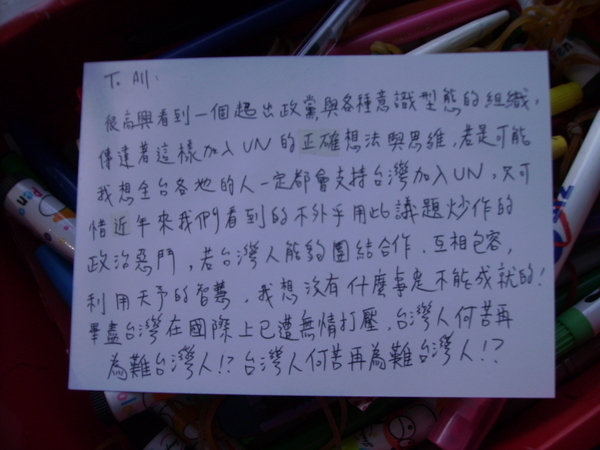 To All:
很高興看到一個超出政黨與各種意識型態的組織,
傳達著這樣加入UN的正確想法與思維,若是可能
我想全台各地的人一定都會支持台灣加入UN,只可
惜近年來我們看到的不外乎用此議題炒作的
政治惡鬥,若台灣人能夠團結合作、互相包容,
利用天予的智慧,我想沒有什麼事是不能成就的!
畢盡台灣在國際上已遭無情打壓,台灣人何苦再
為難台灣人!? 台灣人何苦再為難台灣人!?
Pen